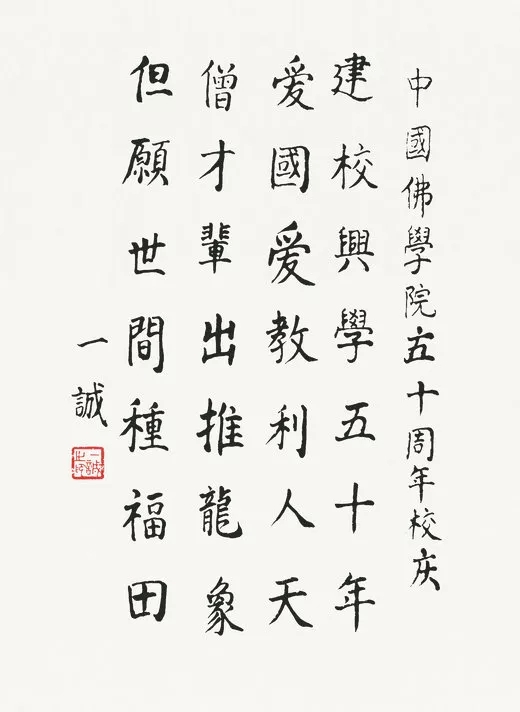 中國佛學院五十周年校庆
建校興學五十年
爱國爱教利人天
僧才輩出推龍象
但願世間種福田
一誠